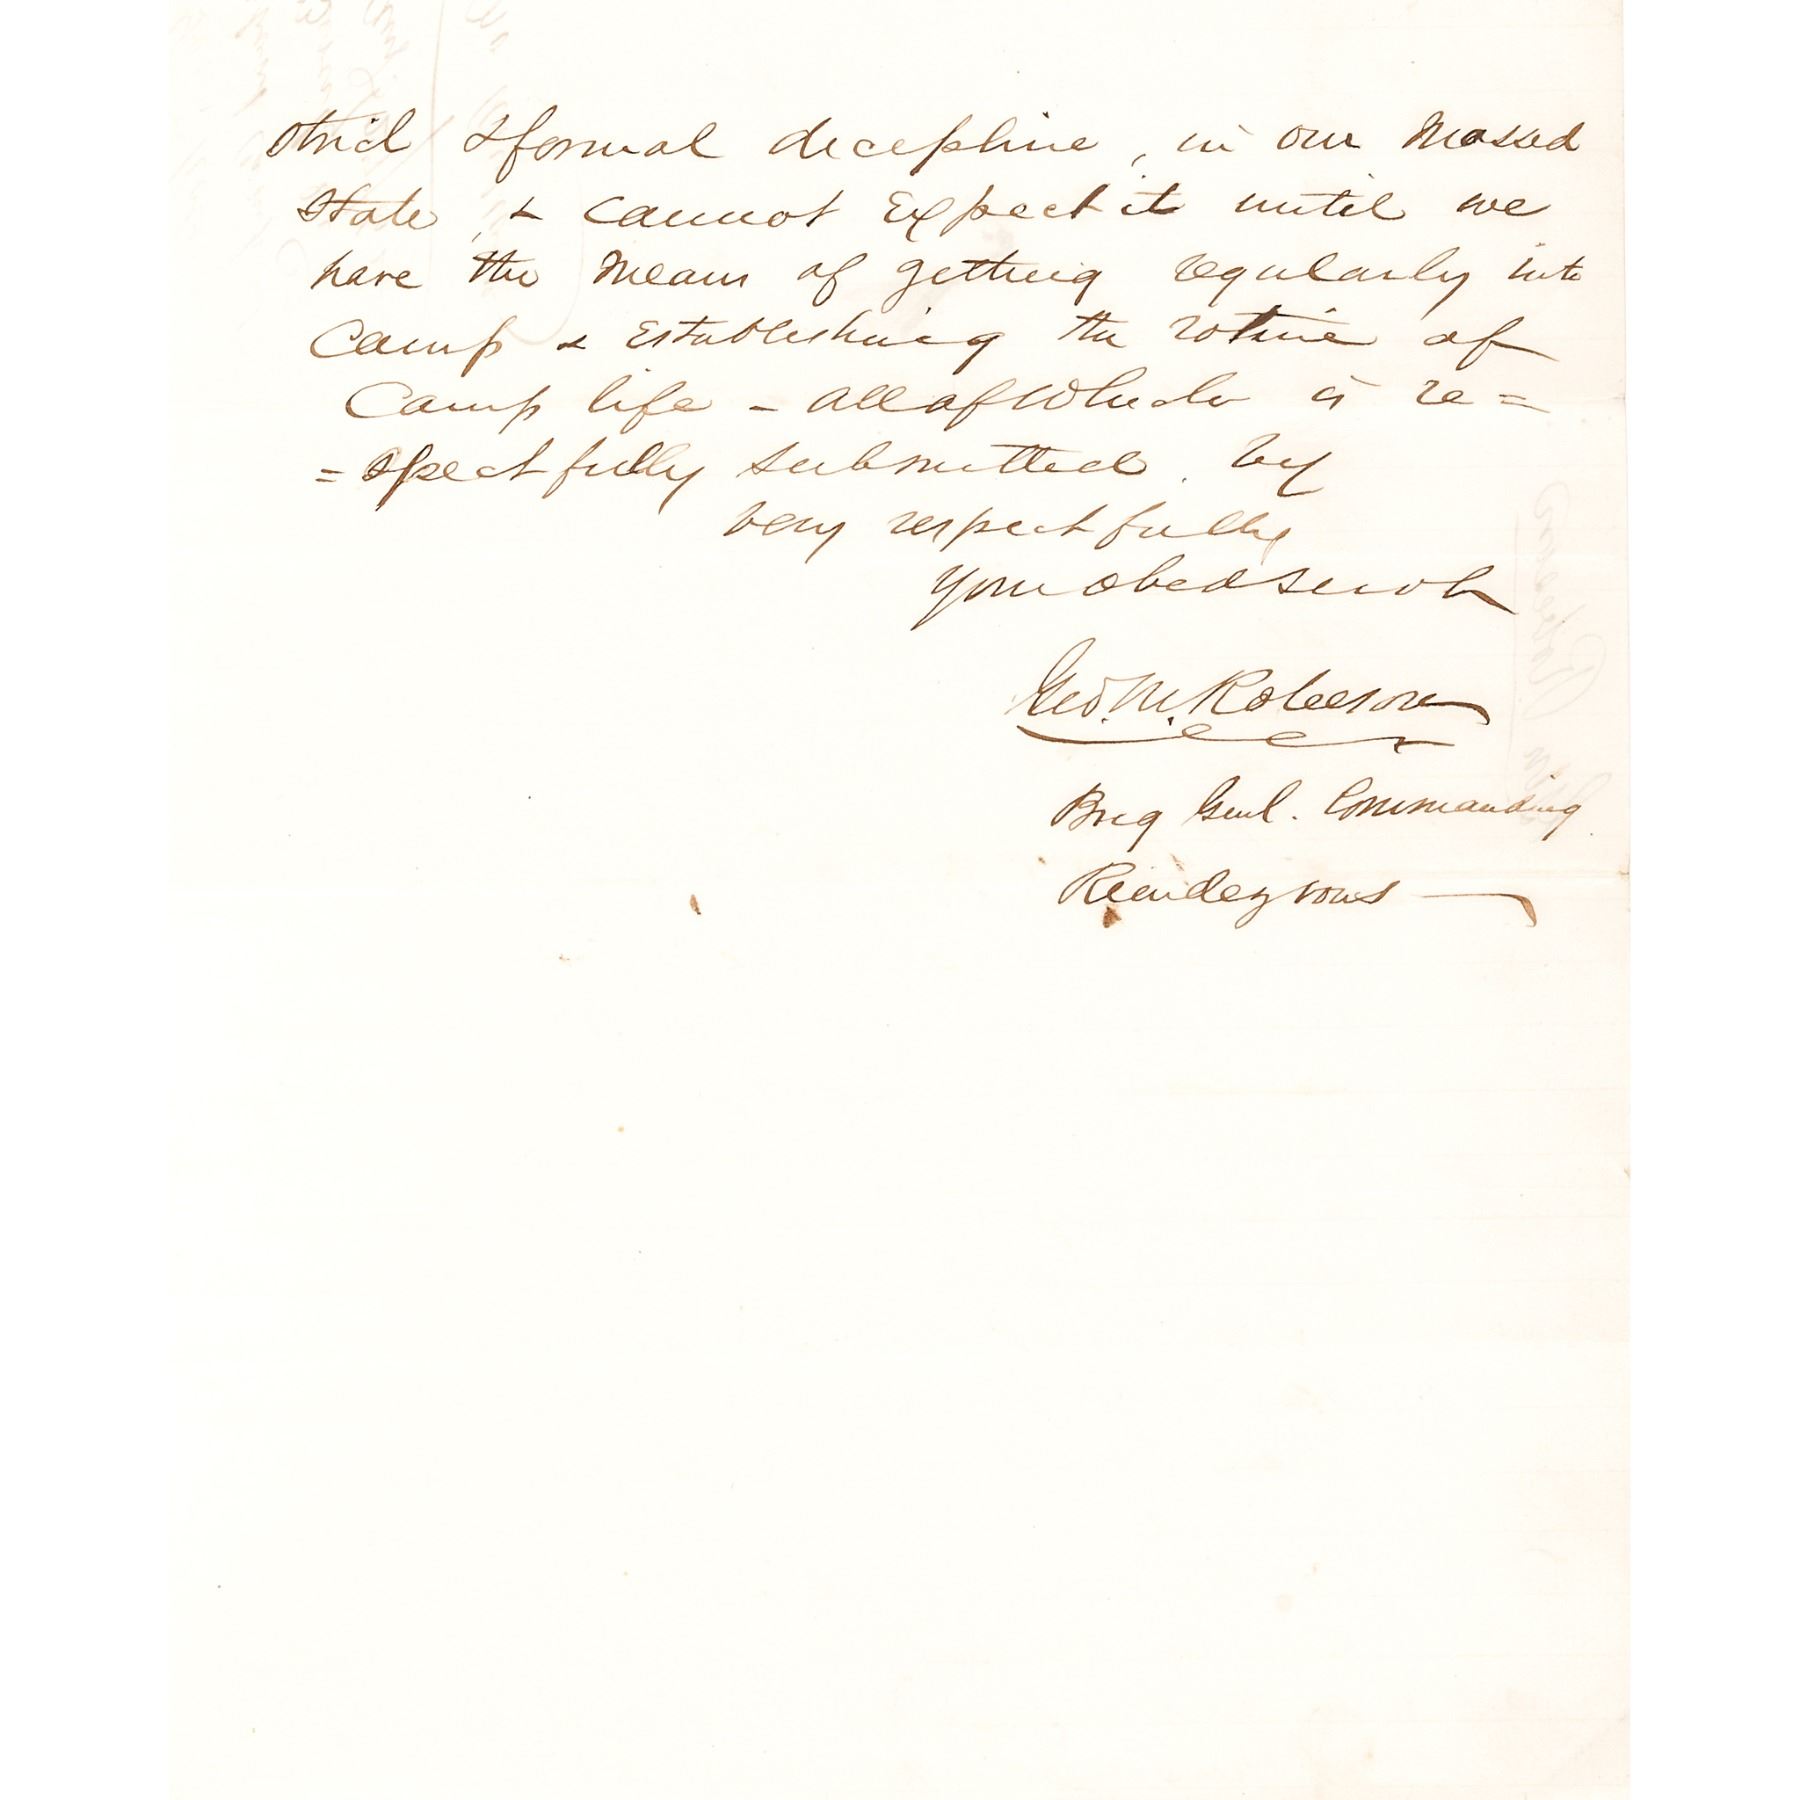 strict & formal decepline, in our Massed
State, & cannot Expect it until we
have the Means of getting regularly into
Camp & Establishing the rotine of
Camp life - all of which is re=
=spectfully submitted by
very respectfully
Your obed servt
Geo. M. Robeson
Brig Genl. Commanding
Rendezvous